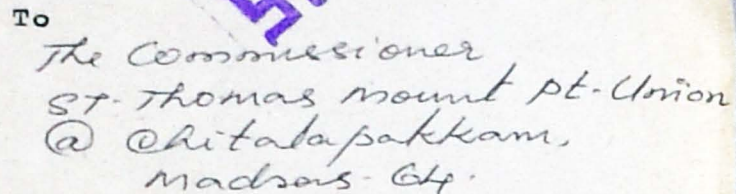 To
The Commissioner
ST-Thomas Mount Pt-Union
@ Chitalapakkam,
Madras-64.